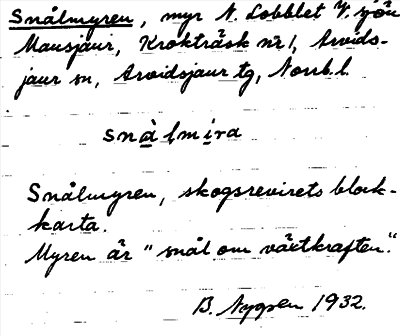 Snålmyren, myr N. Lobblet V. sjön
Mausjaur, Kroktråsk nr 1, Arvids-
jaur sn, Arvidsjaur tg, Norrb. l.
snàlmira
Snålmyren, skogsrevirets block-
karta.
Myren är "snål om växtkraften".
B. Nygren 1932.